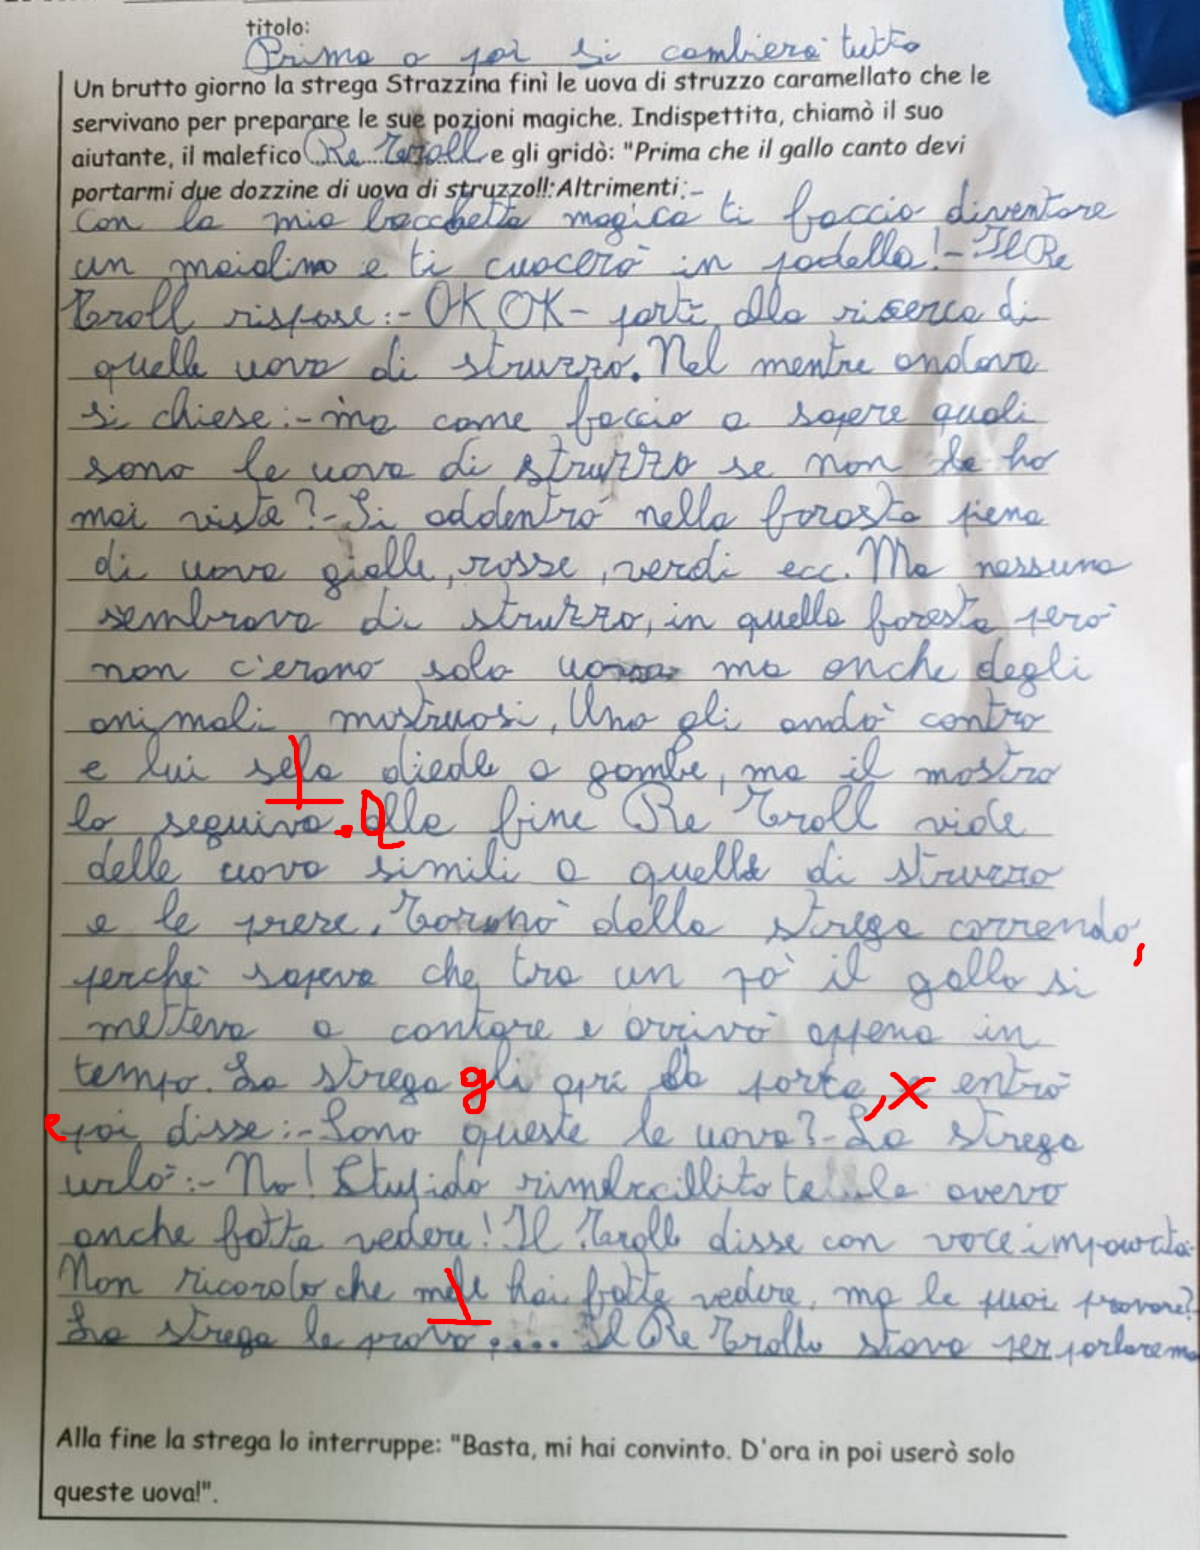 titolo:
Prima o poi si cambierà tutto
Un brutto giorno la strega Strazzina finì le uova di struzzo caramellato che le
servivano per preparare le sue pozioni magiche. Indispettita, chiamò il suo
aiutante, il malefico Re Troll e gli gridò: "Prima che il gallo canto devi
portarmi due dozzine di uova di struzzo!!:Altrimenti:-
con la mia bacchetta magica ti faccio diventare
un maialino e ti cuocerò in padella!-Il Re
Troll rispose:-OK OK- partì alla ricerca di
quelle uova di struzzo. Nel mentre andava
si chiese:-ma come faccio a sapere quali
sono le uova di struzzo se non le ho
mai viste?-Si addentrò nella forosta piena
di uova gialle, rosse, verdi ecc. Ma nessuna
sembrava di struzzo, in quella foresta però
non c'erano solo uova ma anche degli
animali mostruosi. Uno gli andò contro
e lui sela diede a gambe, ma il mostro
lo seguiva. Alla fine Re Troll vide
delle uova simili a quelle di struzzo
e le prese. Tornò dalla strega correndo,
perchè sapeva che tra un pò il gallo si
metteva a cantare e arrivò appena in
tempo. La strega gli aprì la porta, x entrò
e poi disse:-Sono queste le uova?-La strega
urlò:-No! Stupido rimbecillito te le avevo
anche fatte vedere! Il Troll disse con voce impaurita:
Non ricordo che mele hai fatte vedere, ma le puoi provare?
La strega le provò.... Il Re Troll stava per parlare ma
Alla fine la strega lo interruppe: "Basta, mi hai convinto. D'ora in poi userò solo
queste uova!".